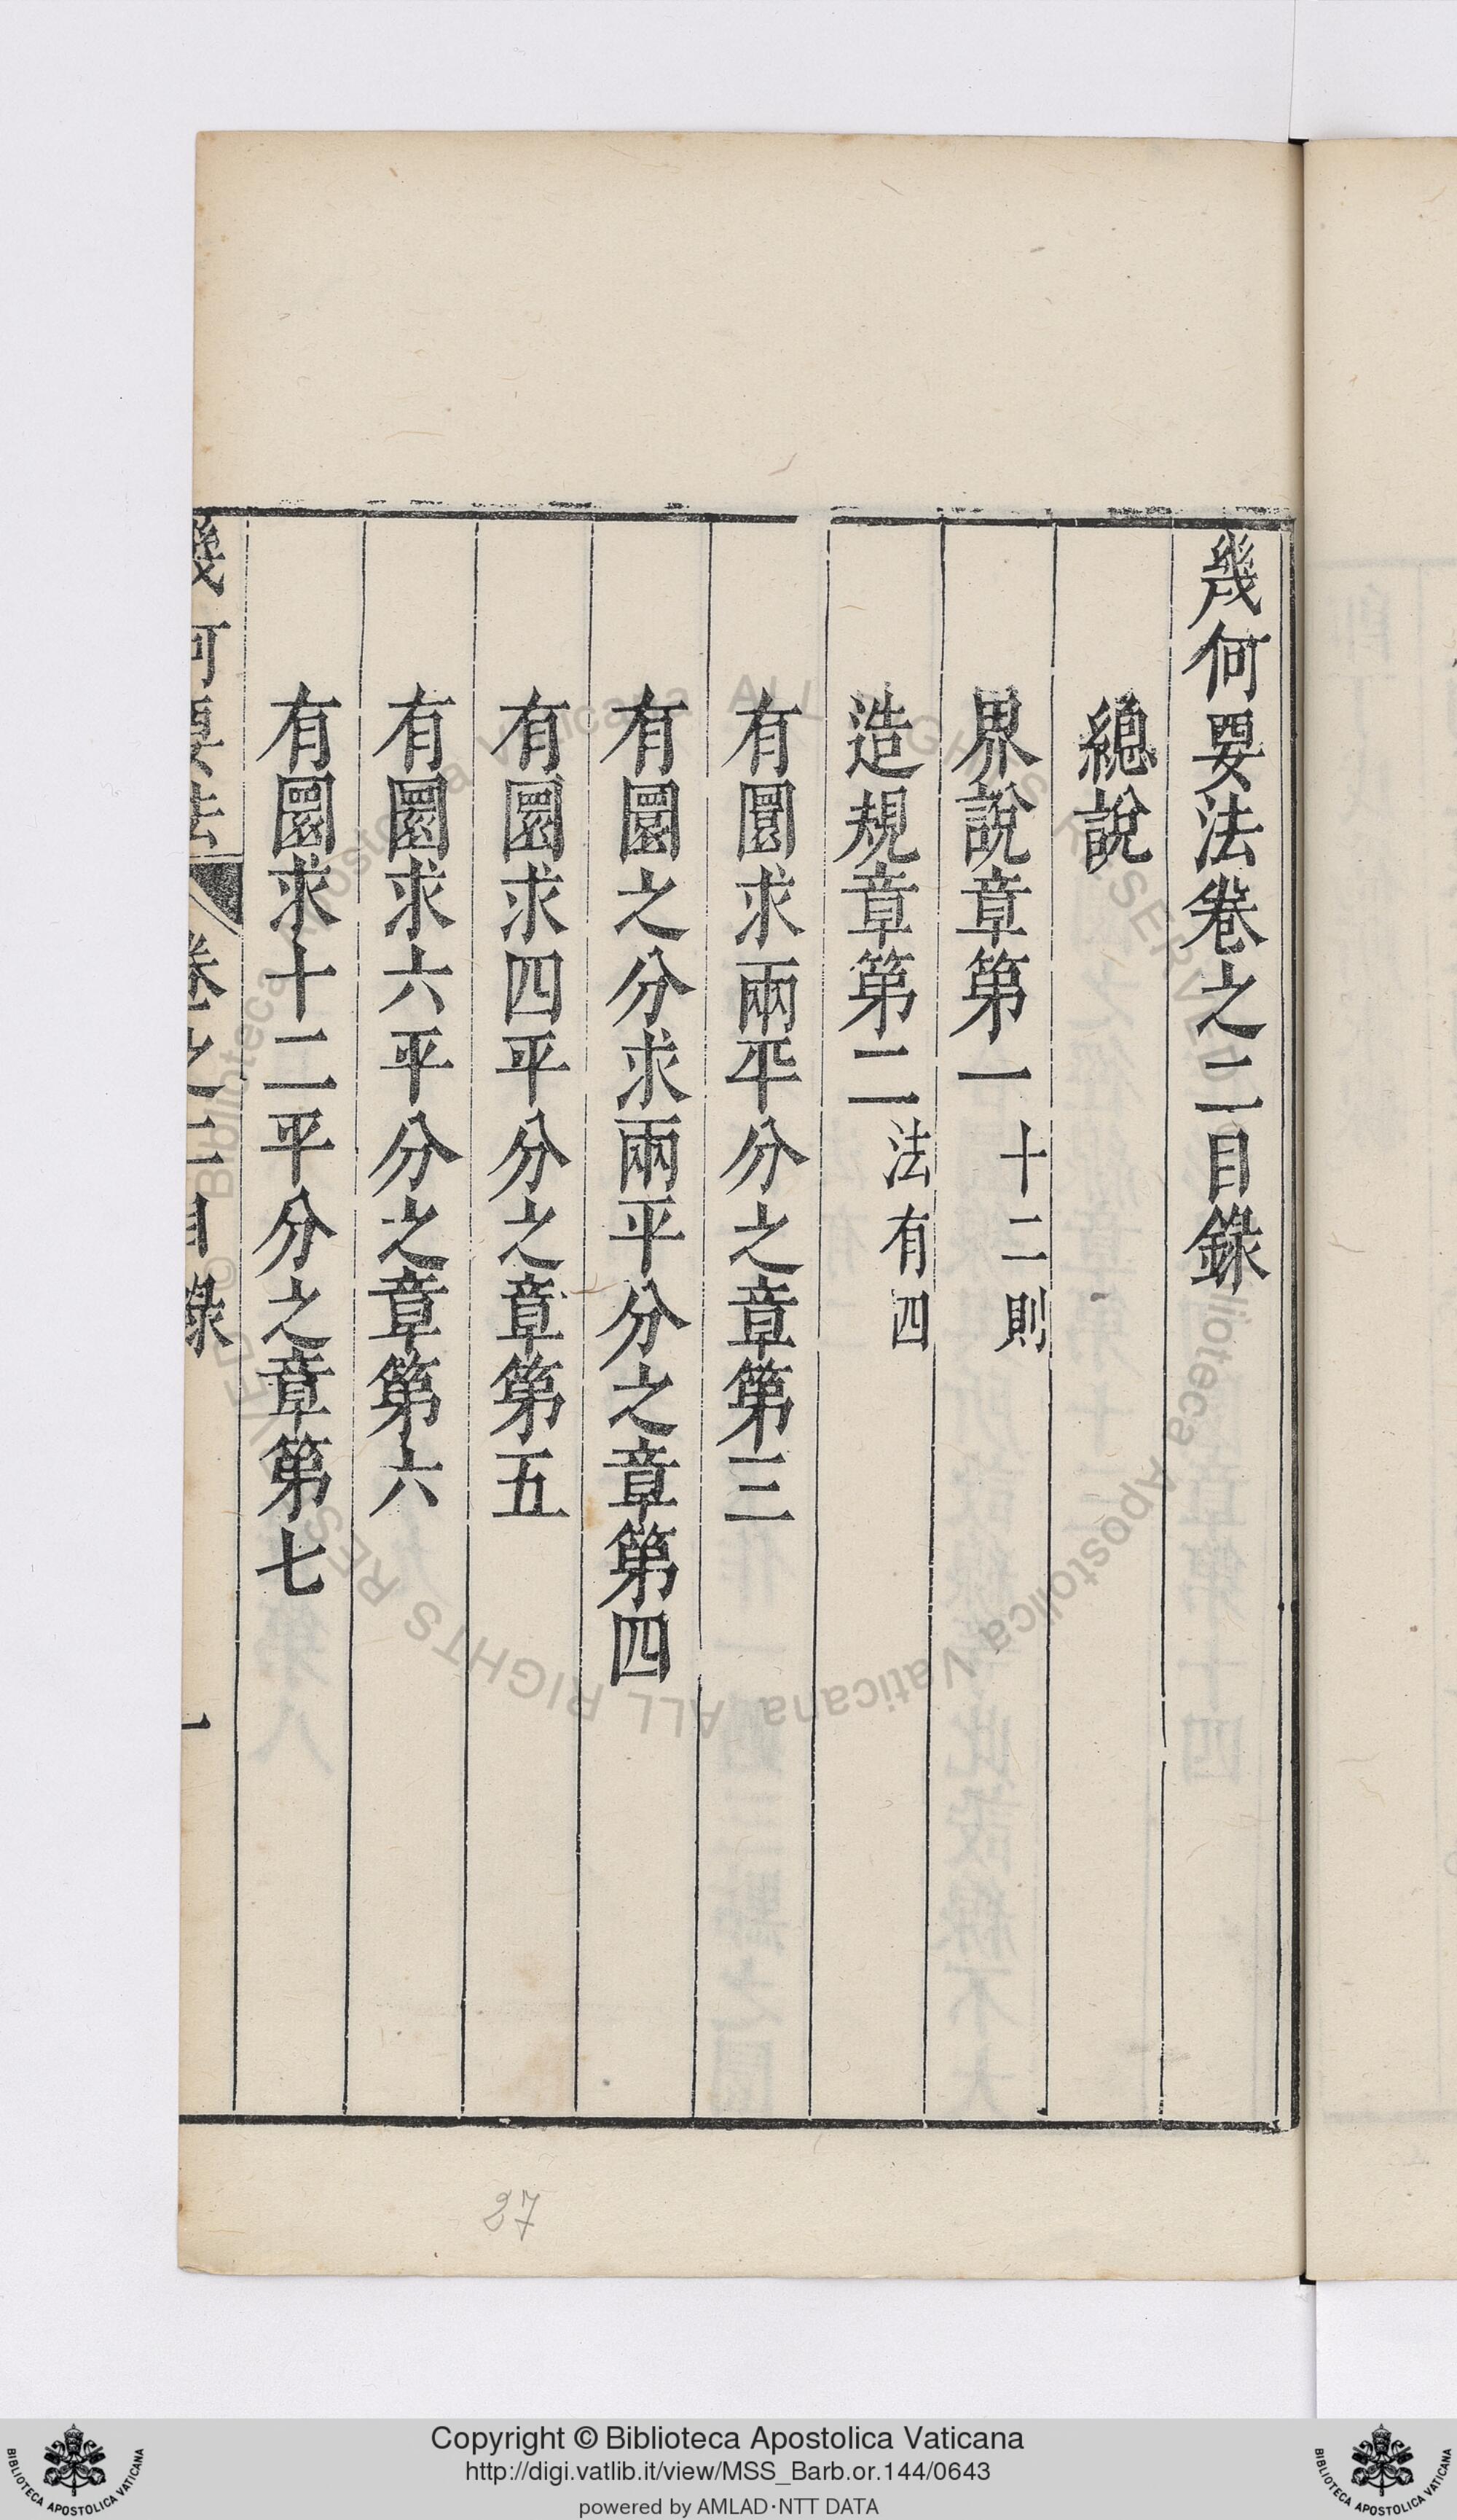 幾何要法卷之二目錄
總說
界說章第一 十二則
造規章第二 法有四
有圜求兩平分之章第三
有圜之分求兩平分之章第四
有圜求四平分之章第五
有圜求六平分之章第六
有圜求十二平分之章第七
幾何要法 卷之二目錄 一
27
Copyright © Biblioteca Apostolica Vaticana
http://digi.vatlib.it/view/MSS_Barb.or.144/0643
powered by AMLAD·NTT DATA
BIBLIOTECA APOSTOLICA VATICANA
BIBLIOTECA APOSTOLICA VATICANA